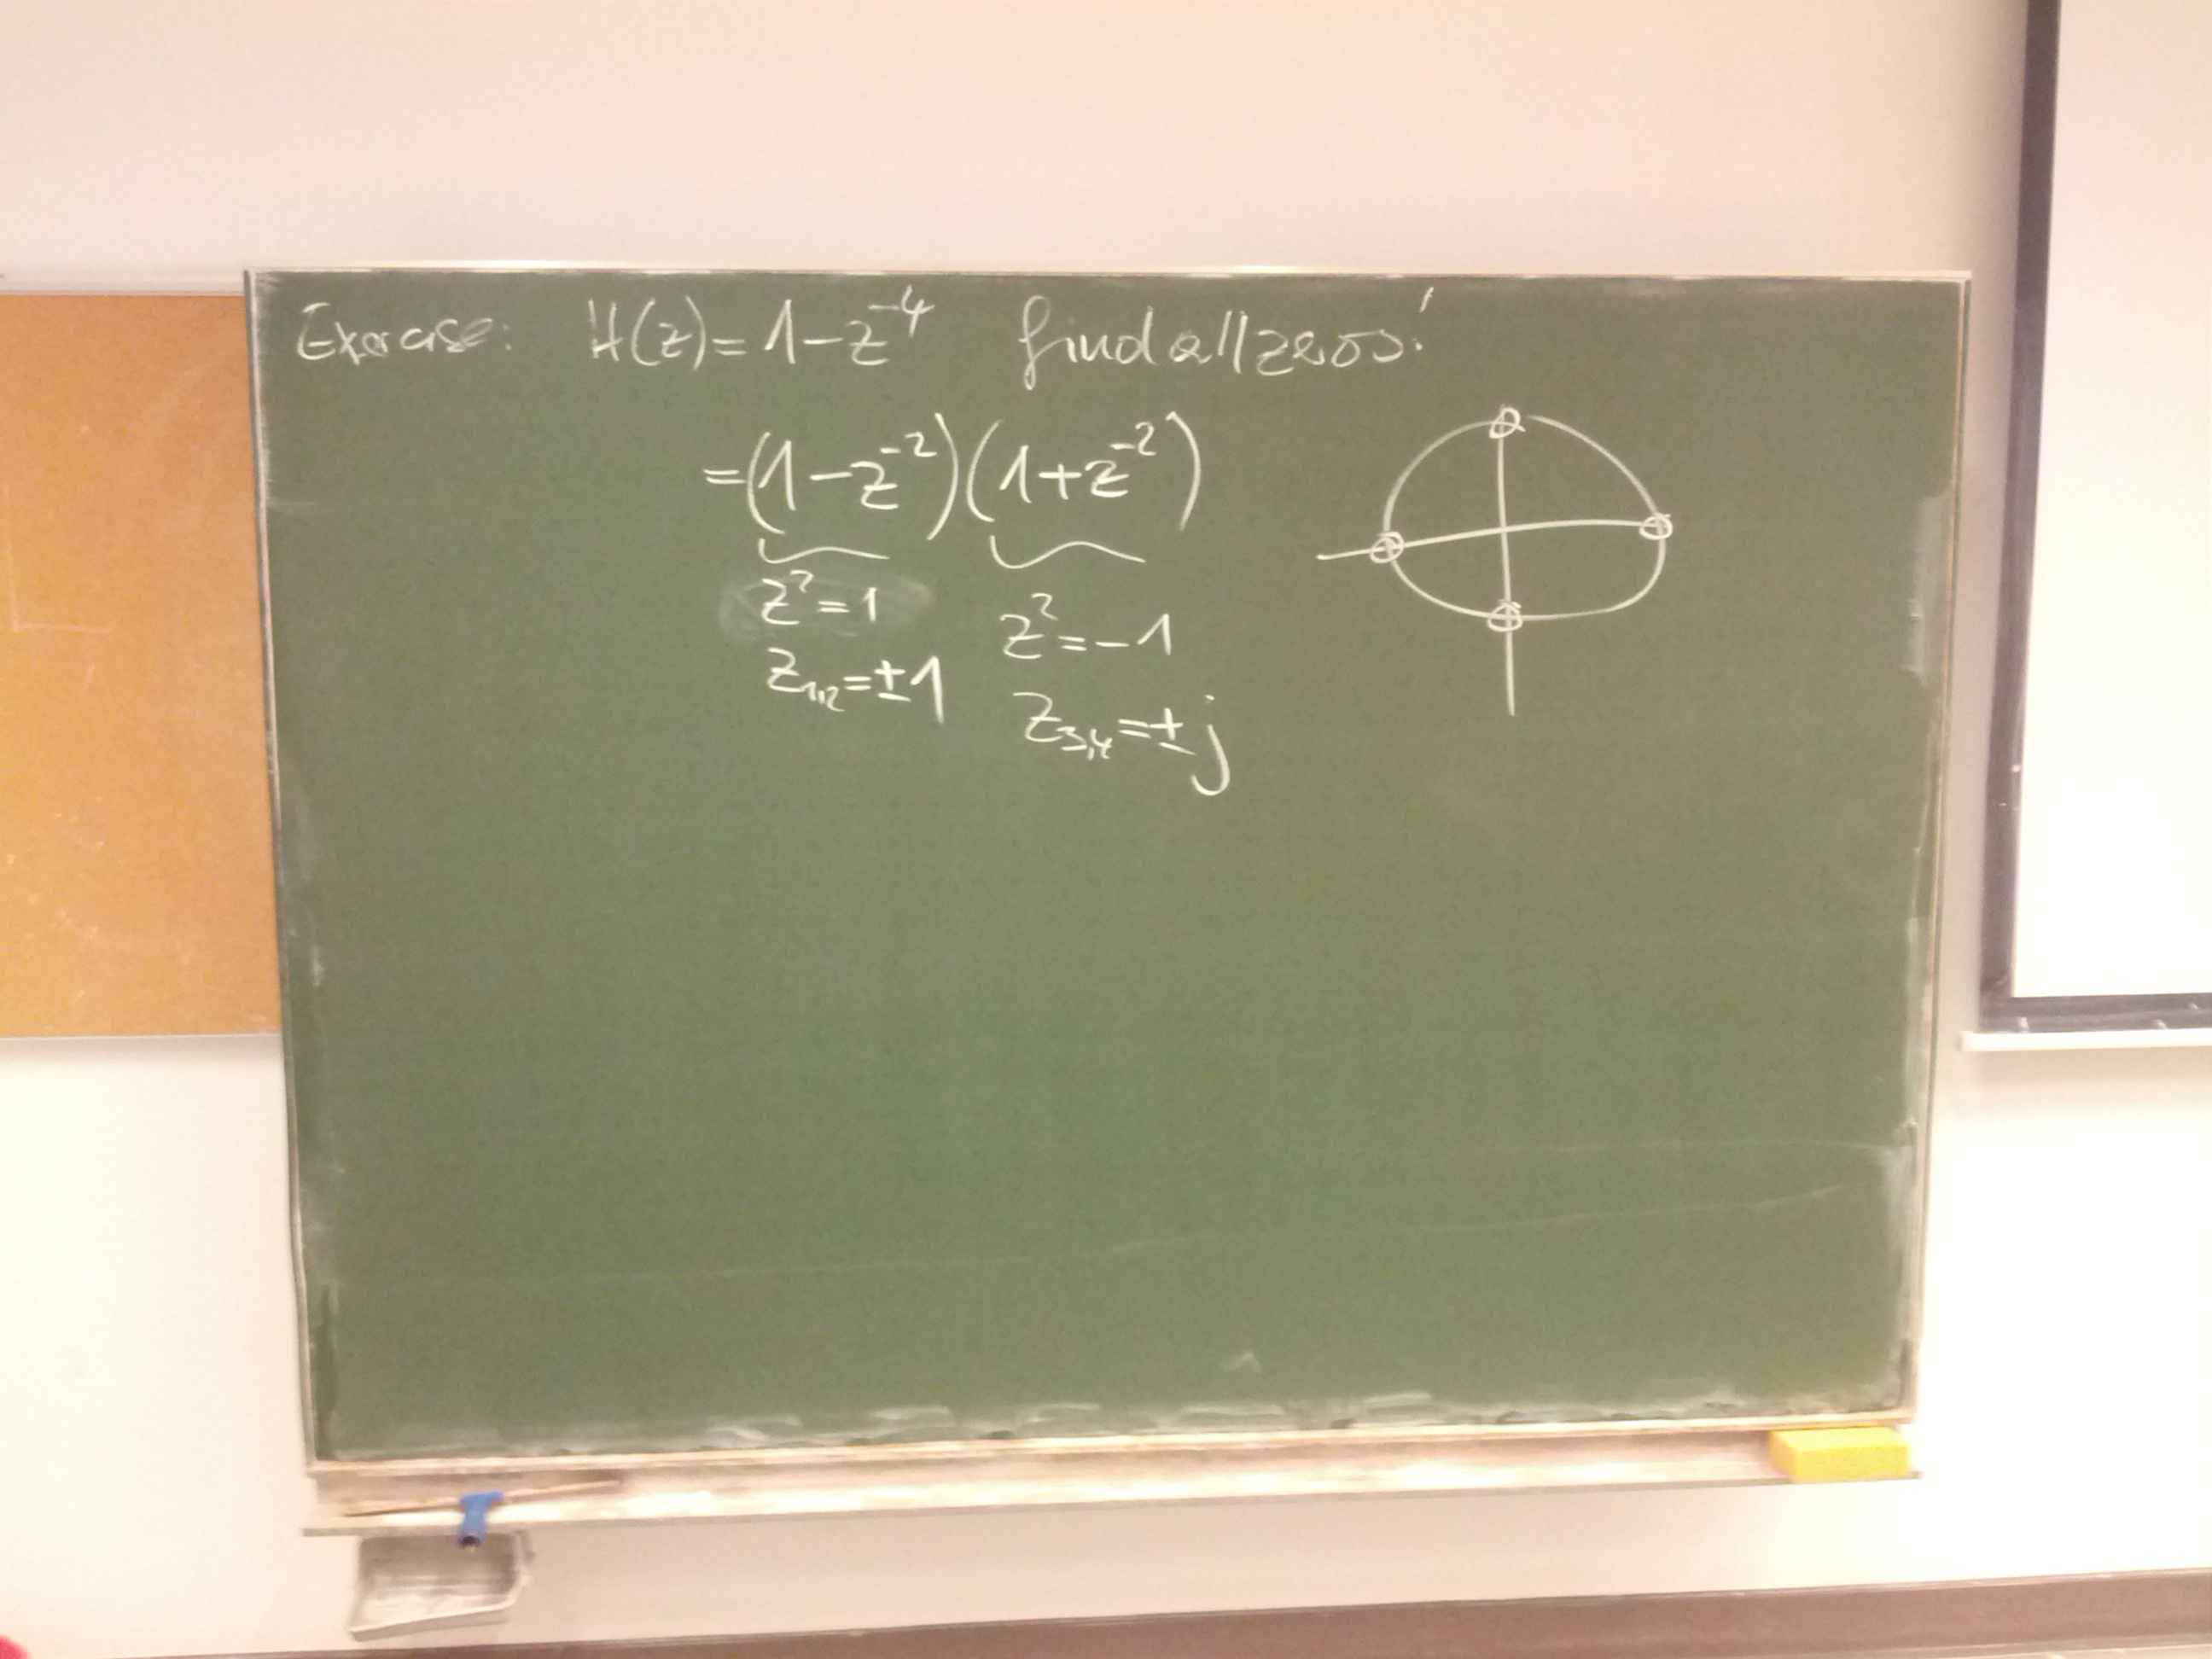 Exercise: H(z) = 1 - z^-4 find all zeros!
= (1 - z^-2)(1 + z^-2)
z^2 = 1 z^2 = -1
z_1,2 = ±1 z_3,4 = ±j